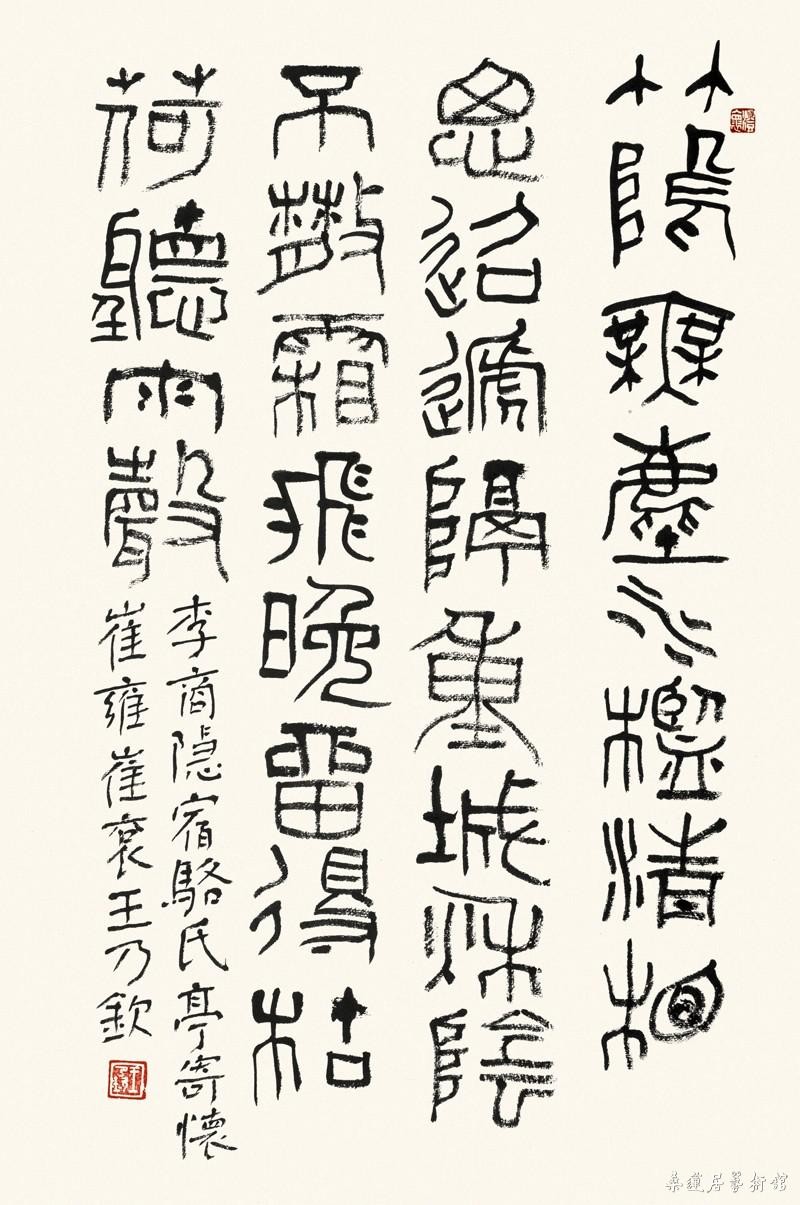 竹隖無塵水檻清相
思迢遞隔重城秌陰
不散霜飛晚留得枯
荷聽雨聲
李商隐宿駱氏亭寄懷
崔雍崔衮王乃欽
桑蓮居藝術館